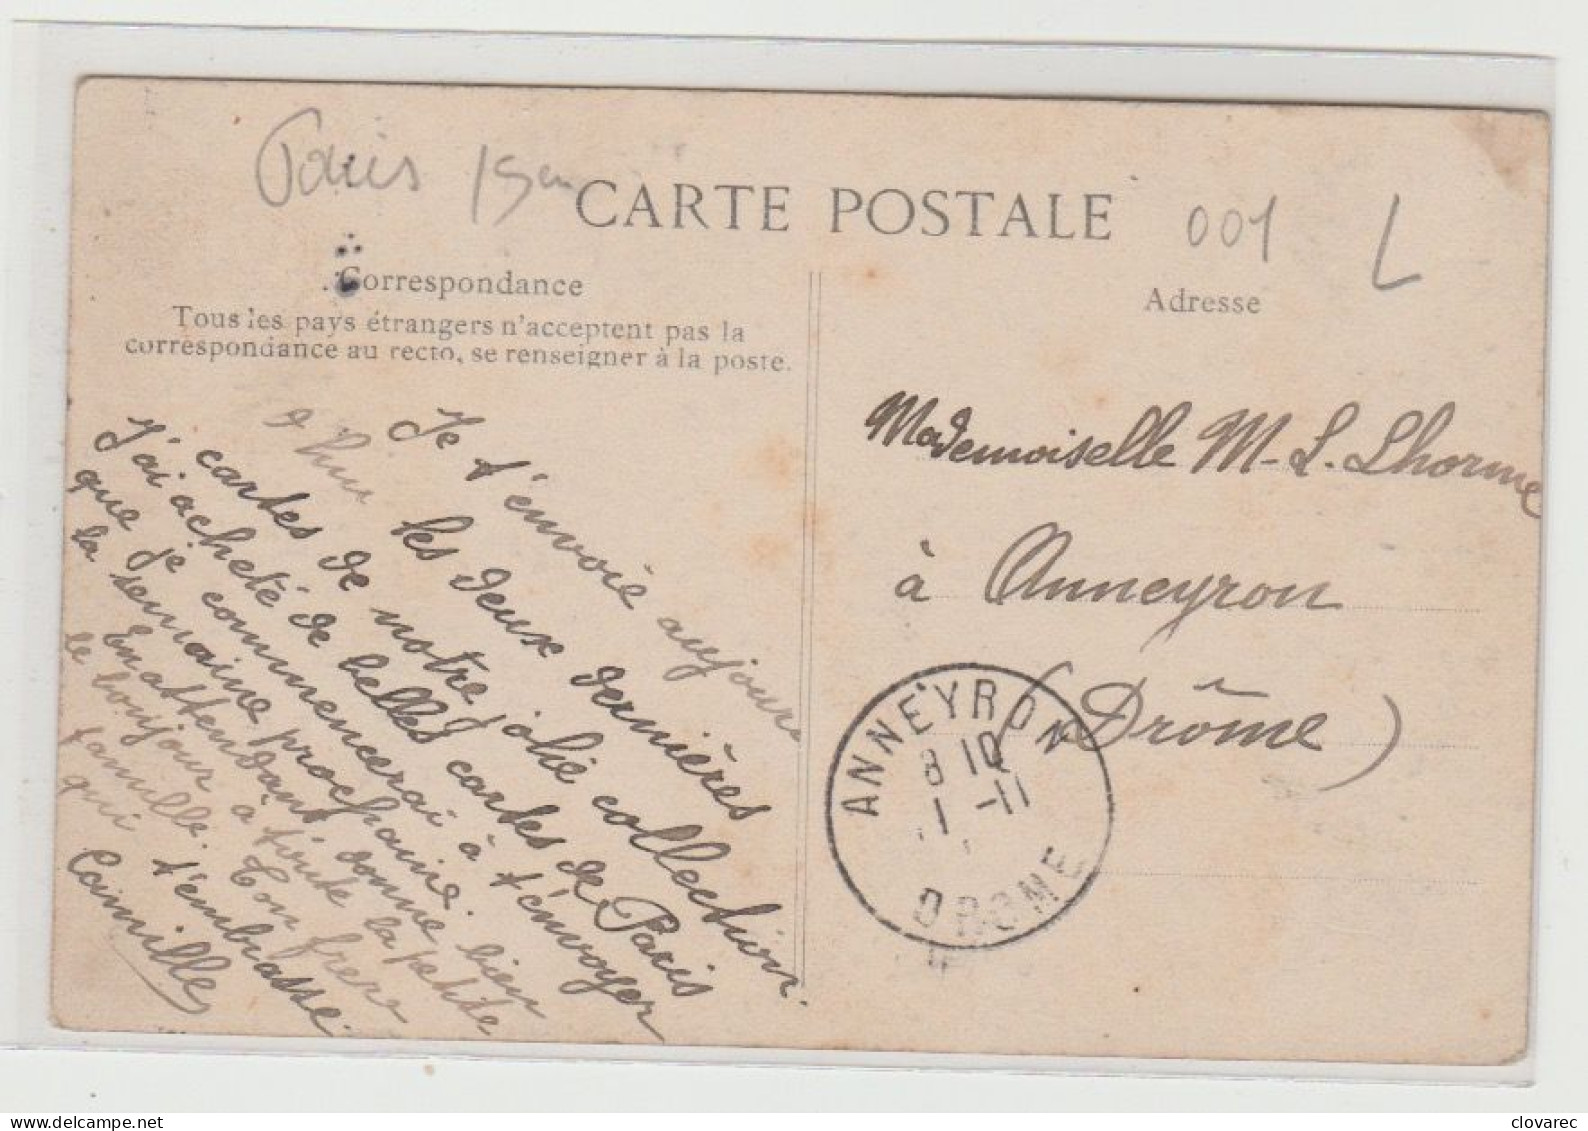 Paris 15em
CARTE POSTALE
001
L
Correspondance
Tous les pays étrangers n'acceptent pas la
correspondance au recto, se renseigner à la poste.
Adresse
Je t'envoie aujour
d'hui les deux dernières
cartes de notre jolie collection.
J'ai acheté de belles cartes de Paris
que je commencerai à t'envoyer
la semaine prochaine.
En attendant donne bien
le bonjour à toute la petite
famille. Ton frère
qui t'embrasse.
Camille
Mademoiselle M-L. Lhorme
à Anneyron
(Drôme)
ANNEYRON
8 10
1 -11
DROME
clovarec